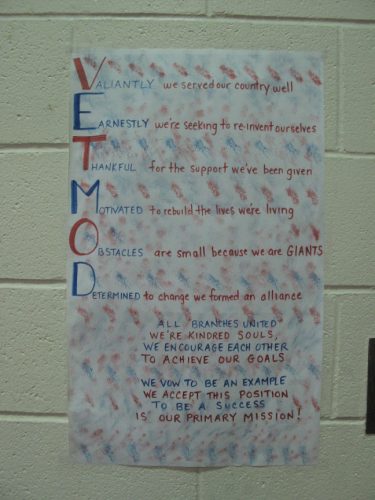 VALIANTLY we served our country well
EARNESTLY we're seeking to re-invent ourselves
THANKFUL for the support we've been given
MOTIVATED to rebuild the lives we're living
OBSTACLES are small because we are GIANTS
DETERMINED to change we formed an alliance
ALL BRANCHES UNITED
WE'RE KINDRED SOULS,
WE ENCOURAGE EACH OTHER
TO ACHIEVE OUR GOALS
WE VOW TO BE AN EXAMPLE
WE ACCEPT THIS POSITION
TO BE A SUCCESS
IS OUR PRIMARY MISSION!